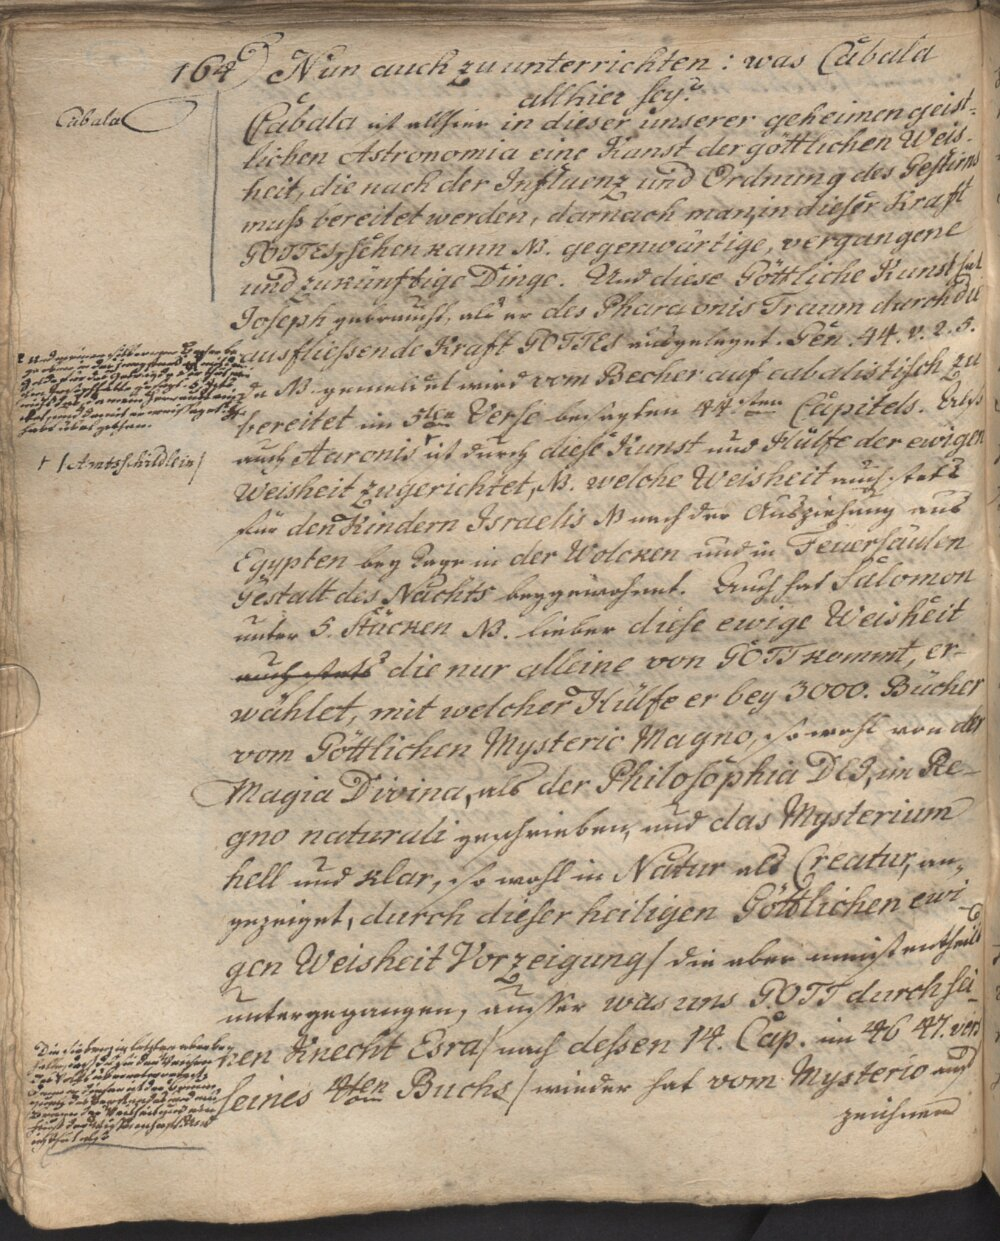 164) Nun auch zu unterrichten: was Cabala
allhier sey?
Cabala
Cabala ist allhier in dieser unserer geheimen geist-
lichen Astronomia eine Kunst der göttlichen Weis-
heit, die nach der Influenz und Ordnung des Gestirns
muß bereitet werden, darnach man, in dieser Krafft
GOTTES, sehen kann NB. gegenwärtige, vergangene
und zukünftige Dinge. Und diese Göttliche Kunst hat
Joseph gebraucht, als er des Pharaonis Traum durch die
ausfließende Krafft GOTTES ausgeleget. Gen. 44. v. 2. 5.
da NB. gemeldet wird vom Becher auf cabalistisch zu
bereitet im 5ten Verse besagten 44.sten Capitels. Also
auch Aaronis † ist durch diese Kunst und Hülfe der ewigen
† /Amtsschildlein/
Weisheit zugerichtet, NB. welche Weisheit auch stets
für den Kindern Israelis NB nach der Ausziehung aus
Egypten bey Tage in der Wolcken und in Feuersäulen
Gestalt des Nachts beygewohnet. Auch hat Salomon
unter 5. Stücken NB. lieber diese ewige Weisheit
auch stets die nur alleine von GOTT kommt, er-
wählet, mit welcher Hülfe er bey 3000. Bücher
vom Göttlichen Mysterio Magno, so wohl von der
Magia Divina, als der Philosophia DEI, im Re-
gno naturali geschrieben, und das Mysterium
hell und klar, so wohl in Natur als Creatur, an-
gezeiget, durch dieser heiligen Göttlichen ewi
gen Weisheit Vorzeigung/ die aber meistentheils
untergegangen, ausser was uns GOTT durch sei-
nen Knecht Esra/ nach deßen 14. Cap. im 46 47. vers
seines 4ten Buchs/ wieder hat vom Mysterio auf
zeichnen